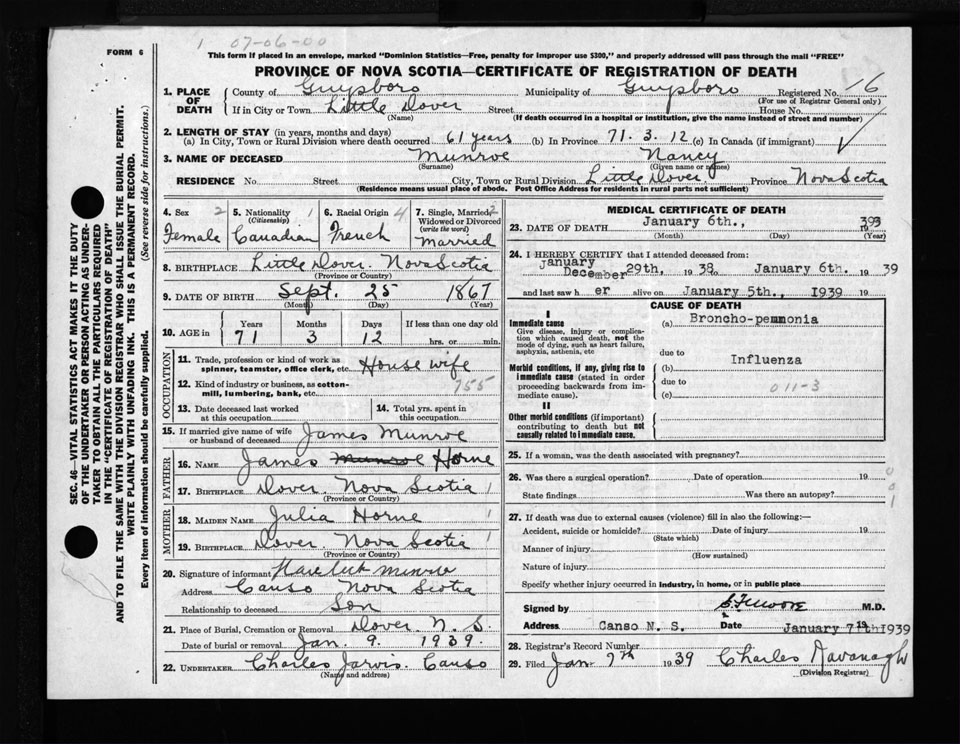 1 07-06-00
FORM 6
This form if placed in an envelope, marked "Dominion Statistics—Free, penalty for improper use $300," and properly addressed will pass through the mail "FREE"
PROVINCE OF NOVA SCOTIA—CERTIFICATE OF REGISTRATION OF DEATH
1. PLACE OF DEATH County of Guysboro Municipality of Guysboro Registered No. 16
(For use of Registrar General only)
If in City or Town Little Dover Street House No.
(Name) (If death occurred in a hospital or institution, give the name instead of street and number)
2. LENGTH OF STAY (in years, months and days)
(a) In City, Town or Rural Division where death occurred 61 years (b) In Province 71. 3. 12 (c) In Canada (if immigrant)
3. NAME OF DECEASED Munroe Nancy
(Surname) (Given name or names)
RESIDENCE No. Street City, Town or Rural Division Little Dover. Province Nova Scotia
(Residence means usual place of abode. Post Office Address for residents in rural parts not sufficient)
4. Sex 2 Female
5. Nationality (Citizenship) 1 Canadian
6. Racial Origin 4 French
7. Single, Married, Widowed or Divorced (write the word) 2 Married
8. BIRTHPLACE Little Dover. Nova Scotia
(Province or Country)
9. DATE OF BIRTH Sept. 25 1867
(Month) (Day) (Year)
10. AGE in Years Months Days If less than one day old
71 3 12 hrs. or min.
OCCUPATION
11. Trade, profession or kind of work as spinner, teamster, office clerk, etc. House wife
12. Kind of industry or business, as cotton-mill, lumbering, bank, etc. 755
13. Date deceased last worked at this occupation
14. Total yrs. spent in this occupation
15. If married give name of wife or husband of deceased James Munroe
FATHER
16. NAME James Munroe Horne
17. BIRTHPLACE Dover. Nova Scotia 1
(Province or Country)
MOTHER
18. MAIDEN NAME Julia Horne 1
19. BIRTHPLACE Dover. Nova Scotia 1
(Province or Country)
20. Signature of informant Havelock Munroe
Address Canso Nova Scotia
Relationship to deceased Son
21. Place of Burial, Cremation or Removal Dover. N. S.
Date of burial or removal Jan. 9. 1939.
22. UNDERTAKER Charles Jarvis. Canso
(Name and address)
MEDICAL CERTIFICATE OF DEATH
23. DATE OF DEATH January 6th., 1939
(Month) (Day) (Year)
24. I HEREBY CERTIFY that I attended deceased from:
January
December 29th, 1938 January 6th. 1939
and last saw h er alive on January 5th., 1939 19
CAUSE OF DEATH
I
Immediate cause
Give disease, injury or complication which caused death, not the mode of dying, such as heart failure, asphyxia, asthenia, etc
(a) Broncho-pemmonia
due to
Morbid conditions, if any, giving rise to immediate cause (stated in order proceeding backwards from immediate cause).
(b) Influenza
due to
(c) 011-3
II
Other morbid conditions (if important) contributing to death but not causally related to immediate cause.
25. If a woman, was the death associated with pregnancy?
26. Was there a surgical operation? Date of operation 19
State findings Was there an autopsy?
0
0
1
27. If death was due to external causes (violence) fill in also the following:—
Accident, suicide or homicide? Date of injury 19
(State which)
Manner of injury
(How sustained)
Nature of injury
Specify whether injury occurred in industry, in home, or in public place
Signed by S.F. Moore M.D.
Address Canso N. S. Date January 7th 1939
28. Registrar's Record Number
29. Filed Jan 9th 1939 Charles Kavanagh
(Division Registrar)
SEC. 46—VITAL STATISTICS ACT MAKES IT THE DUTY
OF THE UNDERTAKER OR PERSON ACTING AS UNDER-
TAKER TO OBTAIN ALL THE PARTICULARS REQUIRED
IN THE "CERTIFICATE OF REGISTRATION OF DEATH"
AND TO FILE THE SAME WITH THE DIVISION REGISTRAR WHO SHALL ISSUE THE BURIAL PERMIT.
WRITE PLAINLY WITH UNFADING INK. THIS IS A PERMANENT RECORD.
Every item of information should be carefully supplied. (See reverse side for instructions.)